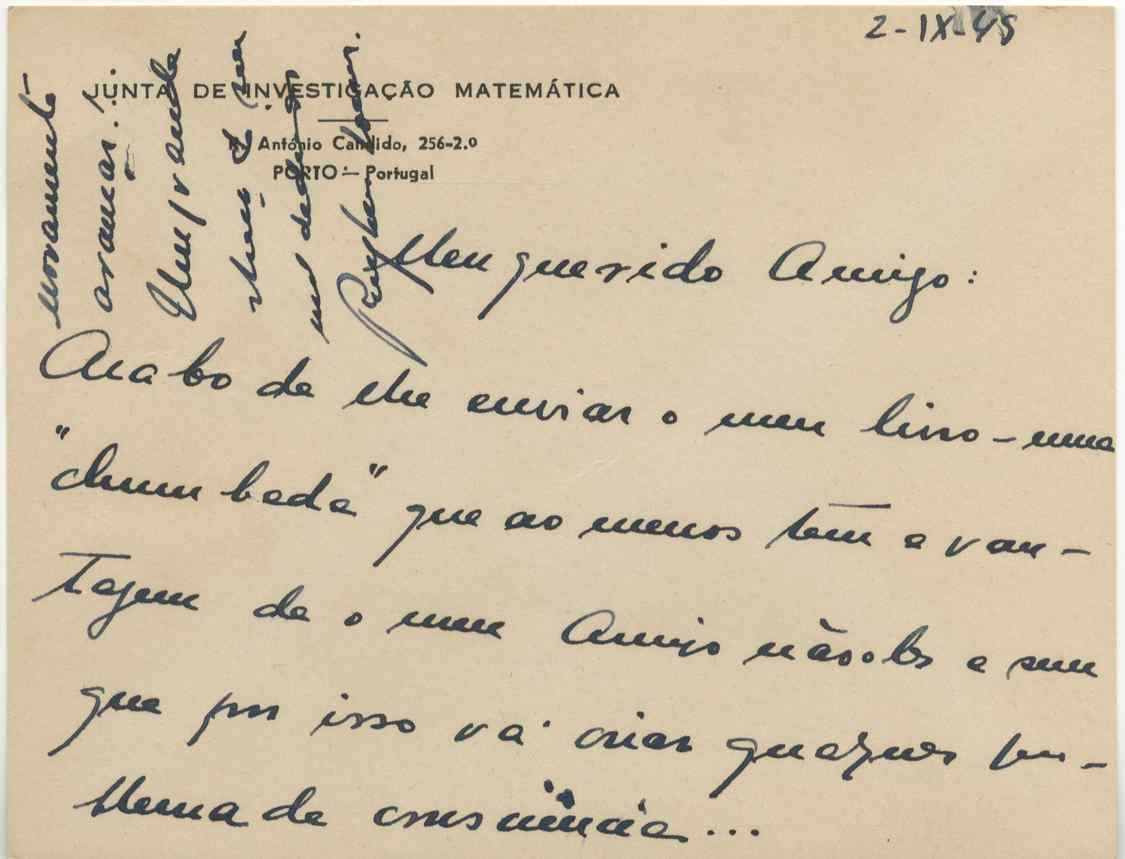 2-IX-45
JUNTA DE INVESTIGAÇÃO MATEMÁTICA
R. António Candido, 256-2.º
PORTO — Portugal
Meu querido Amigo:
Acabo de lhe enviar o meu livro - uma
"chumbada" que ao menos tem a van-
tagem de o meu Amigo não o ler e sem
que por isso vá criar qualquer pro-
blema de consciência...
novamente
arrancar!..
Um grande
abraço do seu